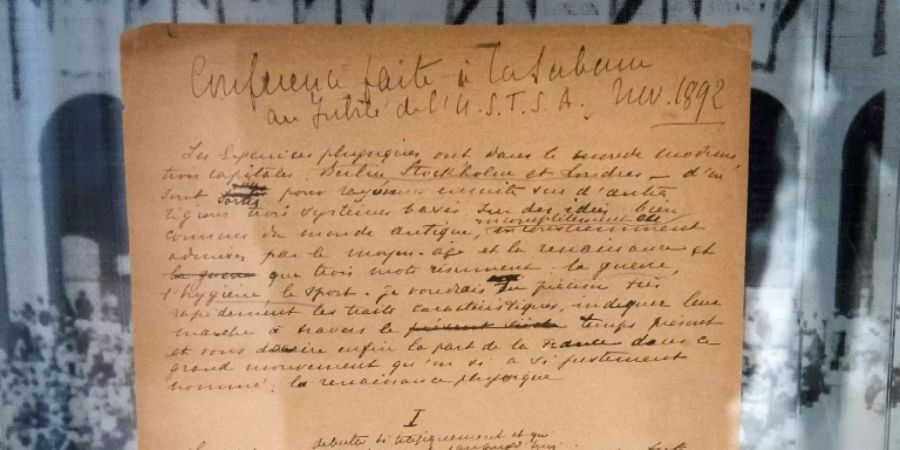 Conférence faite à la Sorbonne
au Jubilé de l'U.S.F.S.A. Nov. 1892
Les Exercices physiques ont dans le monde moderne
trois capitales : Berlin, Stockholm et Londres — d'où
sont pour rayonner ensuite sur d'autres
trois systèmes basés sur des idées bien
incomplètement et
connues du monde antique, inconsciemment
admises par le moyen-âge et la renaissance et
la guerre que trois mots résument : la guerre,
l'hygiène, le sport. Je voudrais en préciser très
rapidement les traits caractéristiques, indiquer leur
marche à travers le présent siècle temps présent
et vous décrire enfin la part de la France dans ce
grand mouvement qu'on a si justement
nommé : la renaissance physique
I
débuter et qui